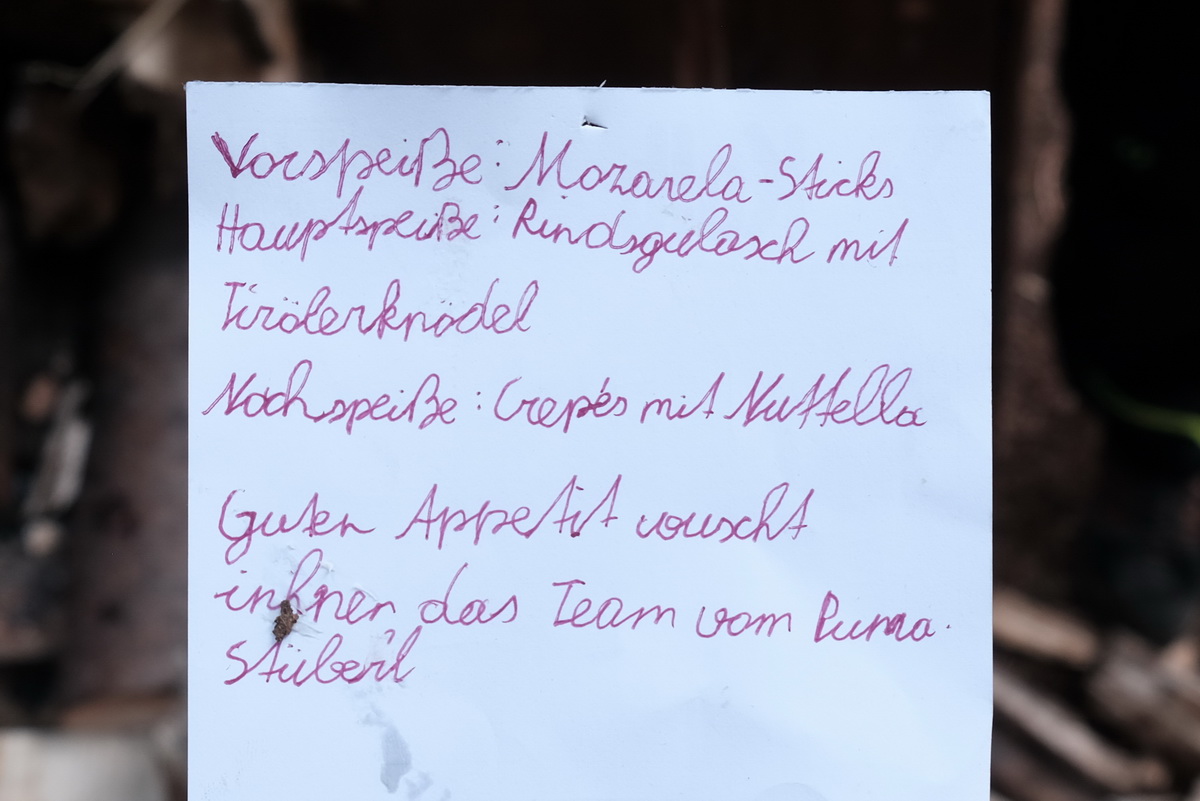 Vorspeiße: Mozarela-Sticks
Hauptspeiße: Rindsgulasch mit
Tirölerknödel
Nachspeiße: Crepés mit Nuttella
Guten Appetit wuscht
inhnen das Team vom Puma
Stüberl